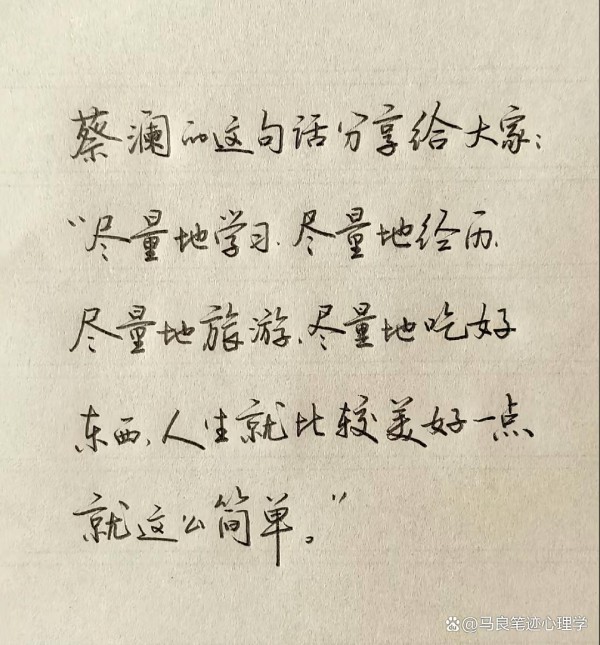 蔡澜的这句话分享给大家：
“尽量地学习、尽量地经历、
尽量地旅游、尽量地吃好
东西、人生就比较美好一点
就这么简单。”
@马良笔迹心理学